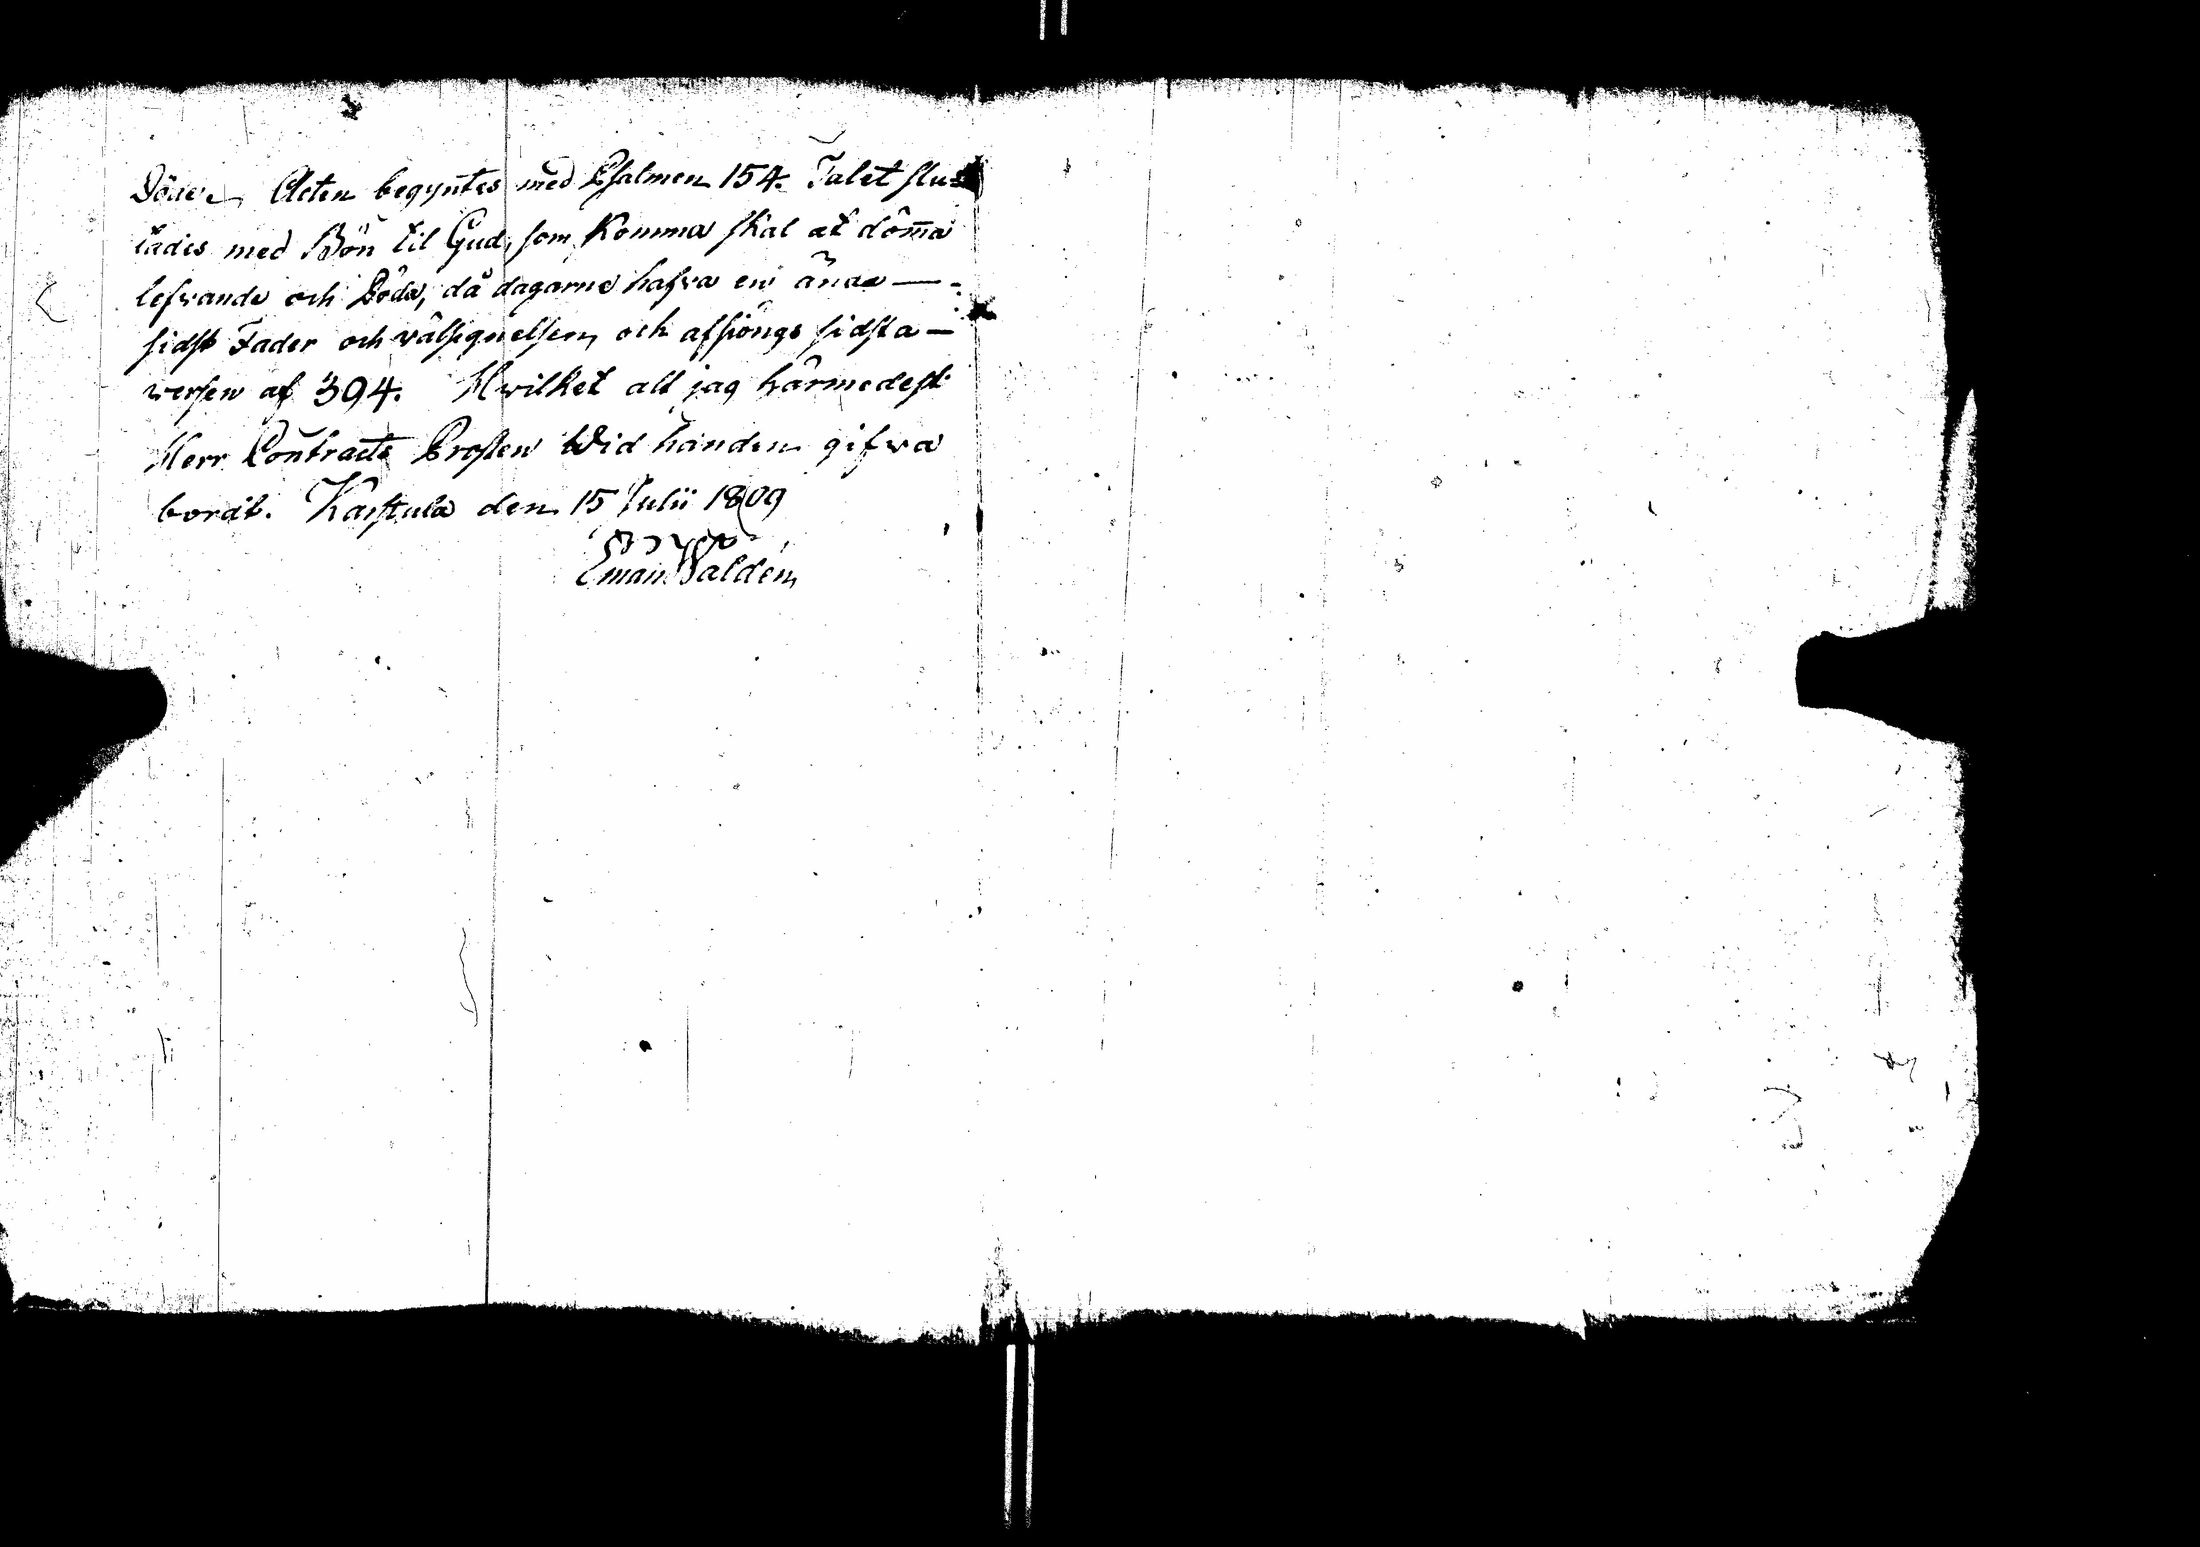 Döde. Acten begyntes med Psalmen 154. Talet slu-
tades med Bön til Gud, som komma skal at döm̄a
lefvande och Döda, då dagarne hafva en ända —
sidst Fader och välsignelsen, och afsjöngs sidsta —
versen af 394. Hvilket alt jag härmedelst
Herr Contracts Prosten wid handen gifva
bordt. Karstula den 15 Julii 1809
Eman Waldén